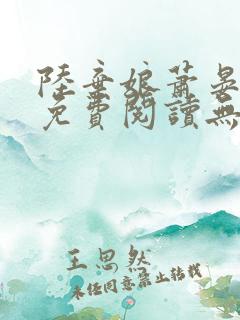 陸棄娘蕭晏
免費閱讀無
王思然
未經同意禁止轉載